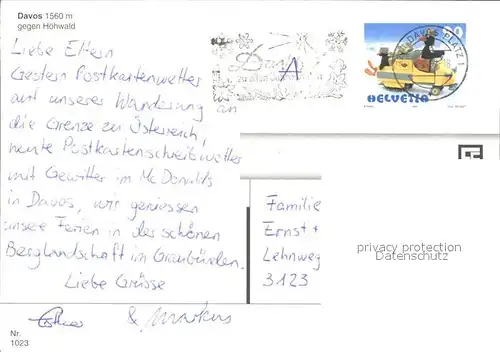 Davos 1560 m
gegen Höhwald
Liebe Eltern
Gestern Postkartenwetter
auf unserer Wanderung an
die Grenze zu Österreich,
heute Postkartenschreibwetter
mit Gewitter im McDonalds
in Davos, wir geniessen
unsere Ferien in der schönen
Berglandschaft im Graubünden.
Liebe Grüsse
Esther & Markus
Nr.
1023
DAVOS PLATZ 1
HELVETIA
Familie
Ernst +
Lehnweg
3123
privacy protection
Datenschutz